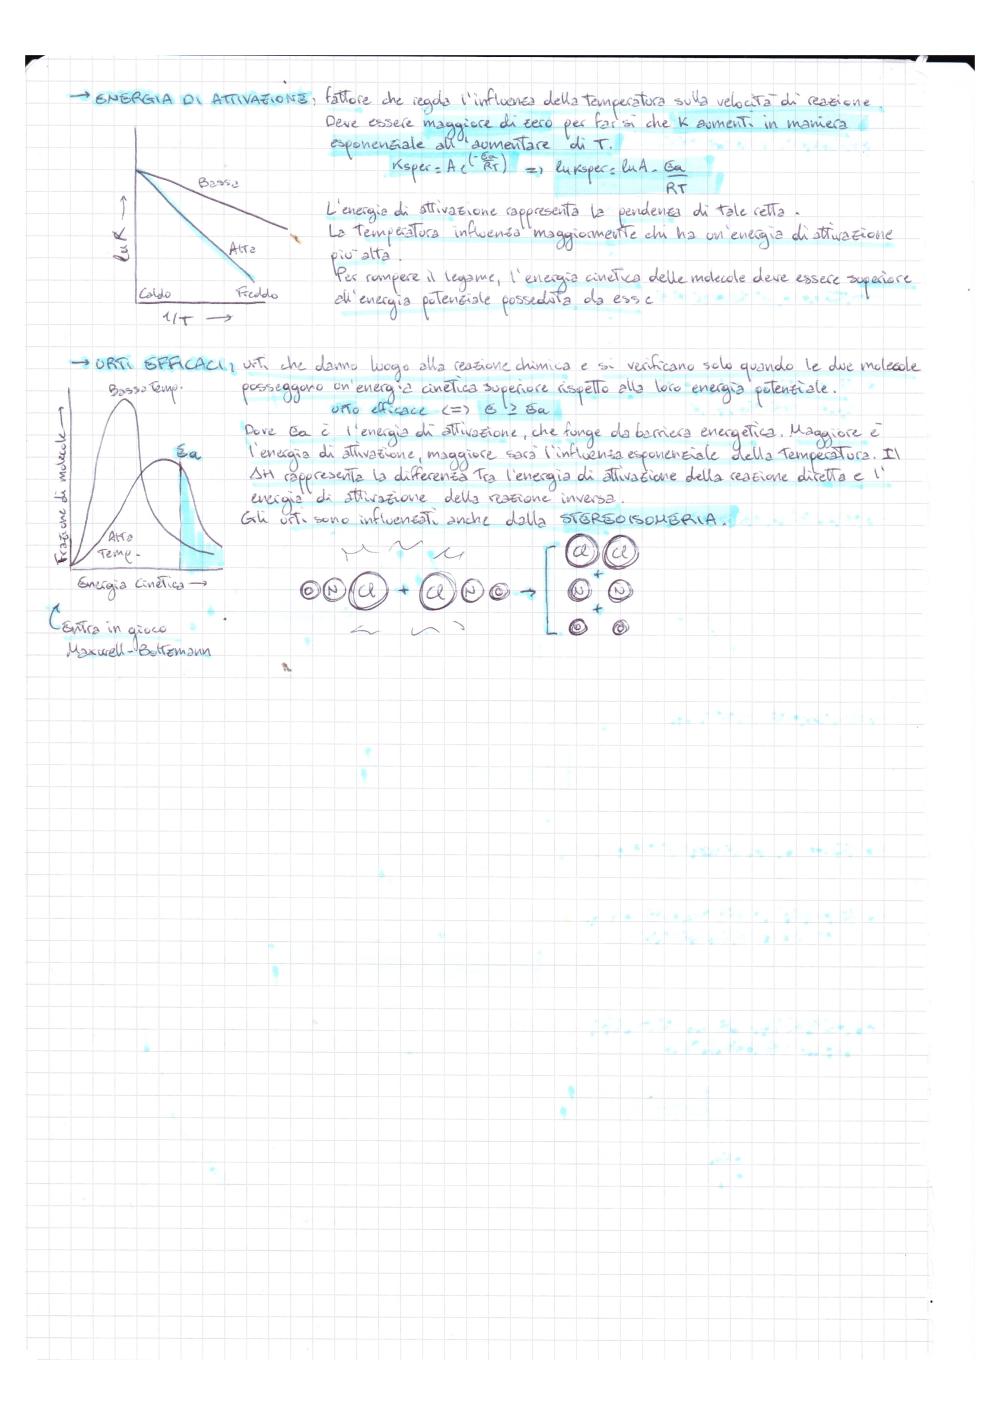 → ENERGIA DI ATTIVAZIONE, fattore che regola l'influenza della temperatura sulla velocità di reazione.
Deve essere maggiore di zero per far si che K aumenti in maniera
esponenziale all'aumentare di T.
Ksper = A e^(-Ea/RT) => ln Ksper = ln A - Ea/RT
L'energia di attivazione rappresenta la pendenza di tale retta.
La temperatura influenza maggiormente chi ha un'energia di attivazione
più alta.
Per rompere il legame, l'energia cinetica delle molecole deve essere superiore
all'energia potenziale posseduta da esse
ln K →
Bassa
Alta
Caldo Freddo
1/T →
→ URTI EFFICACI, urti che danno luogo alla reazione chimica e si verificano solo quando le due molecole
posseggono un'energia cinetica superiore rispetto alla loro energia potenziale.
urto efficace <=> E ≥ Ea
Dove Ea è l'energia di attivazione, che funge da barriera energetica. Maggiore è
l'energia di attivazione, maggiore sarà l'influenza esponenziale della temperatura. Il
ΔH rappresenta la differenza tra l'energia di attivazione della reazione diretta e l'
energia di attivazione della reazione inversa.
Gli urti sono influenzati anche dalla STEREOISOMERIA.
Bassa Temp.
Ea
Alta
Temp.
Frazione di molecole →
Energia Cinetica →
Entra in gioco
Maxwell-Boltzmann
O N Cl + Cl N O →
Cl Cl
+
N N
+
O O